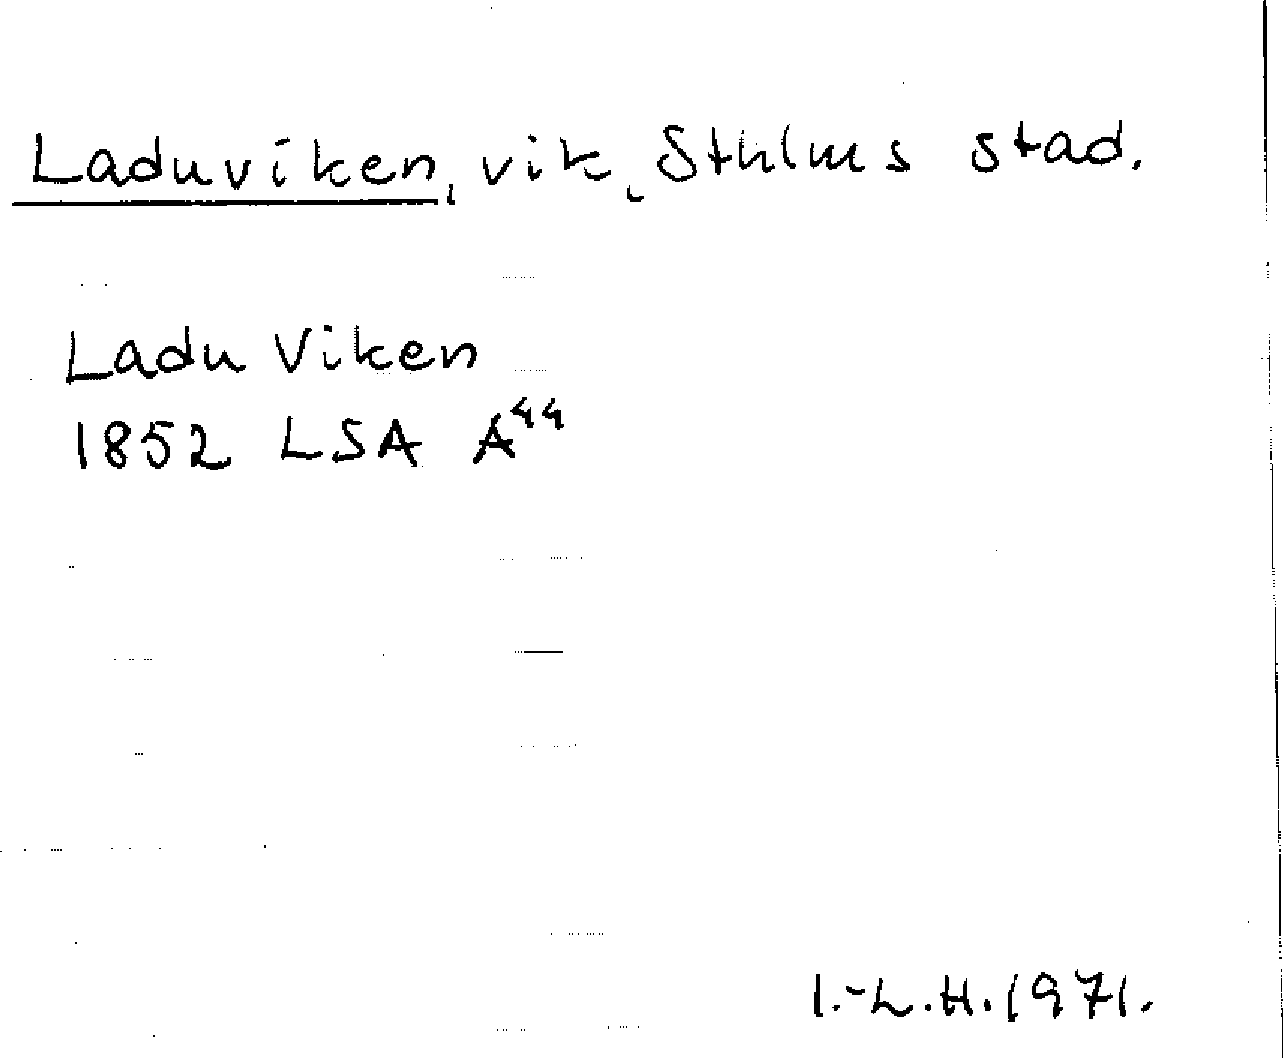 Laduviken, vik, Sthlms stad.
Ladu Viken
1852 LSA A⁴⁴
I.-L.H. 1971.